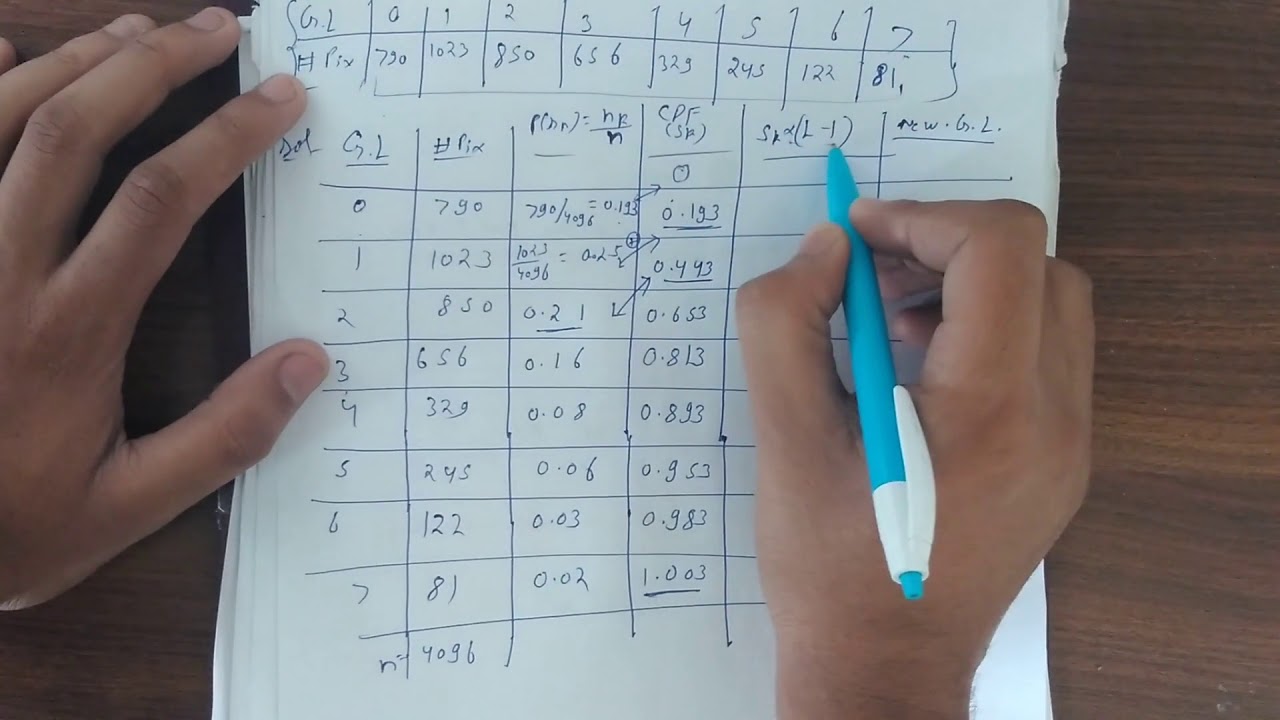 G.L 0 1 2 3 4 5 6 7
# Pix 790 1023 850 656 329 245 122 81
Sol G.L # Pix P(rk) = nk/n CPF (Sk) Sk×(L-1) New. G.L.
0
0 790 790/4096 = 0.193 0.193
1 1023 1023/4096 = 0.25 0.443
2 850 0.21 0.653
3 656 0.16 0.813
4 329 0.08 0.893
5 245 0.06 0.953
6 122 0.03 0.983
7 81 0.02 1.003
n= 4096